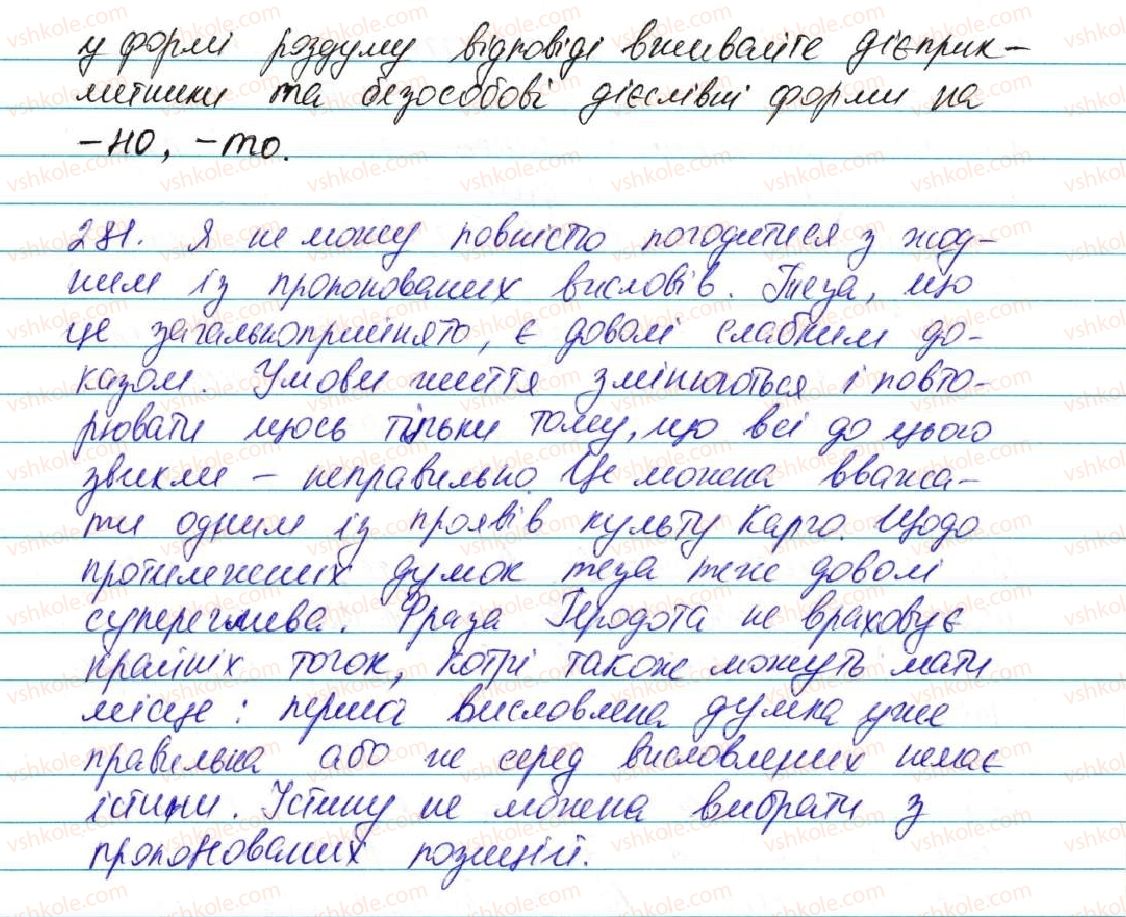 у формі роздуму відповіді вживайте дієприк-
метники та безособові дієслівні форми на
-но, -то.
281. Я не можу повністю погодитися з жод-
ним із пропонованих висловів. Теза, що
це загальноприйнято, є доволі слабким до-
казом. Умови життя змінюються і повто-
рювати щось тільки тому, що всі до цього
звикли – неправильно. Це можна вважа-
ти одним із проявів культу Карго. Щодо
протилежних думок теза теж доволі
суперечлива. Фраза Геродота не враховує
крайніх точок, котрі також можуть мати
місце: перша висловлена думка уже
правильна або же серед висловлених немає
істини. Істину не можна вибрати з
пропонованих позицій.